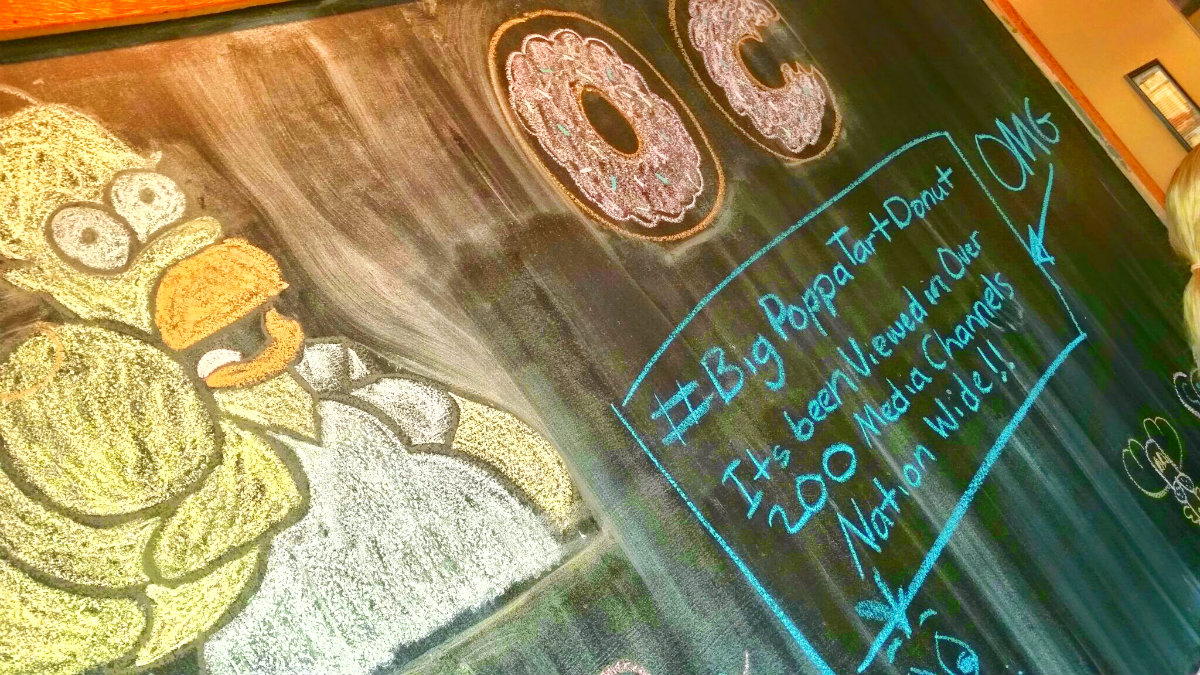 OMG
#BigPoppaTartDonut
It's been Viewed in Over
200 Media Channels
Nation Wide!!